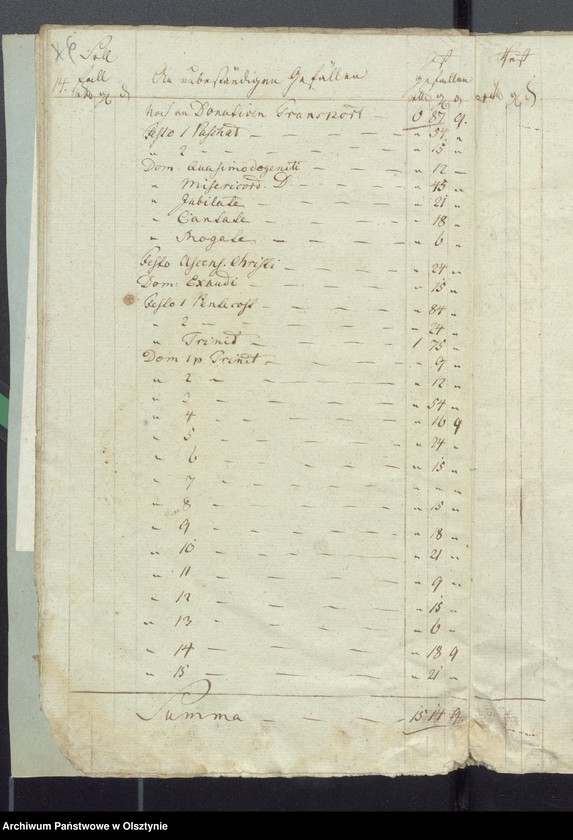 Soll
14. fall An unbeständigen Gefällen gefallen Rest
Noch an Donativen Transport 87 9
Festo 1 Paschat — 54 "
" 2 — " 15 "
Dom. Quasimodogeniti — " 12 —
" Misericord. D — " 45 "
" Jubilate — " 21 "
" Cantate — " 18 "
" Rogate — " 6 "
Festo Ascens. Christi — " 24 "
Dom. Exaudi — " 15 "
Festo 1 Pentecost — " 84 "
" 2 — " 24 "
" Trinit — 1 75 "
Dom 1 p Trinit — " 9 "
" 2 — " 12 "
" 3 — " 54 "
" 4 — " 16 9
" 5 — " 24 "
" 6 — " 15 "
" 7 — " " "
" 8 — " 15 "
" 9 — " 18 "
" 10 — " 21 "
" 11 — " 9 "
" 12 — " 15 "
" 13 — " 6 "
" 14 — " 18 9
" 15 — " 21 "
Summa — 15 14 9
Archiwum Państwowe w Olsztynie